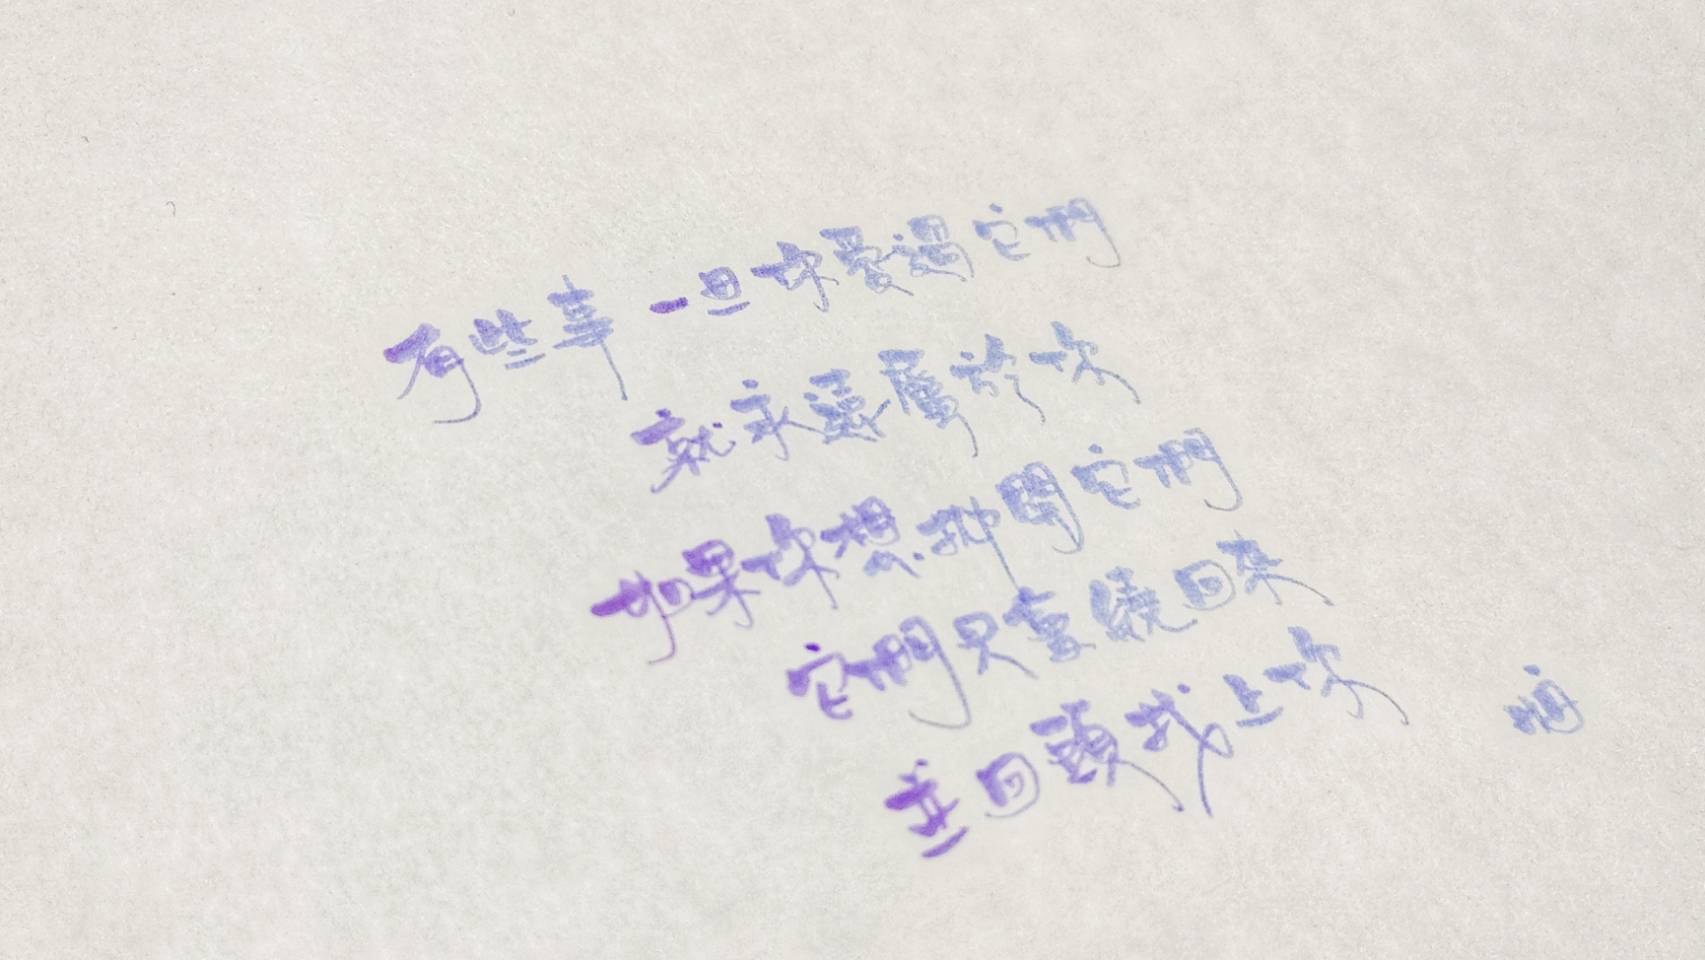 有些事 一旦你愛過它們
就永遠屬於你
如果你想抛開它們
它們只會繞回來
並回頭找上你